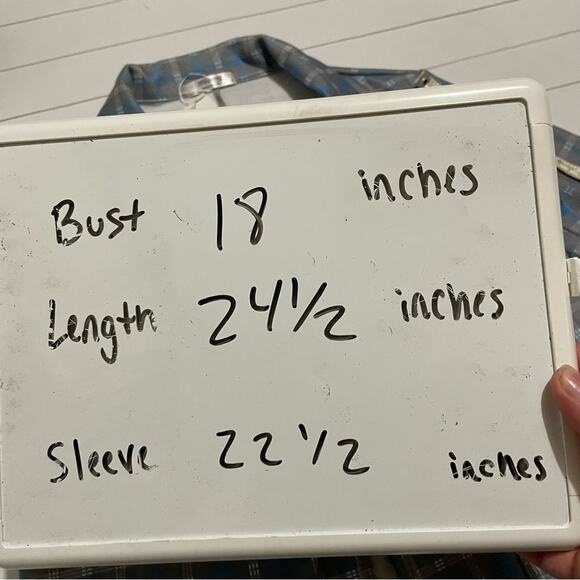 Bust 18 inches
Length 24 1/2 inches
Sleeve 22 1/2 inches